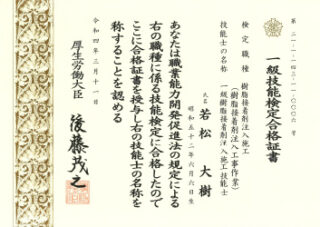 第二一-一-一四三-一一-〇〇〇六号
一級技能検定合格証書
検定職種 樹脂接着剤注入施工
(樹脂接着剤注入工事作業)
技能士の名称 一級樹脂接着剤注入施工技能士
氏名 若松 大樹
昭和五十二年六月六日生
あなたは職業能力開発促進法の規定による
右の職種に係る技能検定に合格したので
ここに合格証書を授与し右の技能士の名称を
称することを認める
令和四年三月十一日
厚生労働大臣 後藤茂之